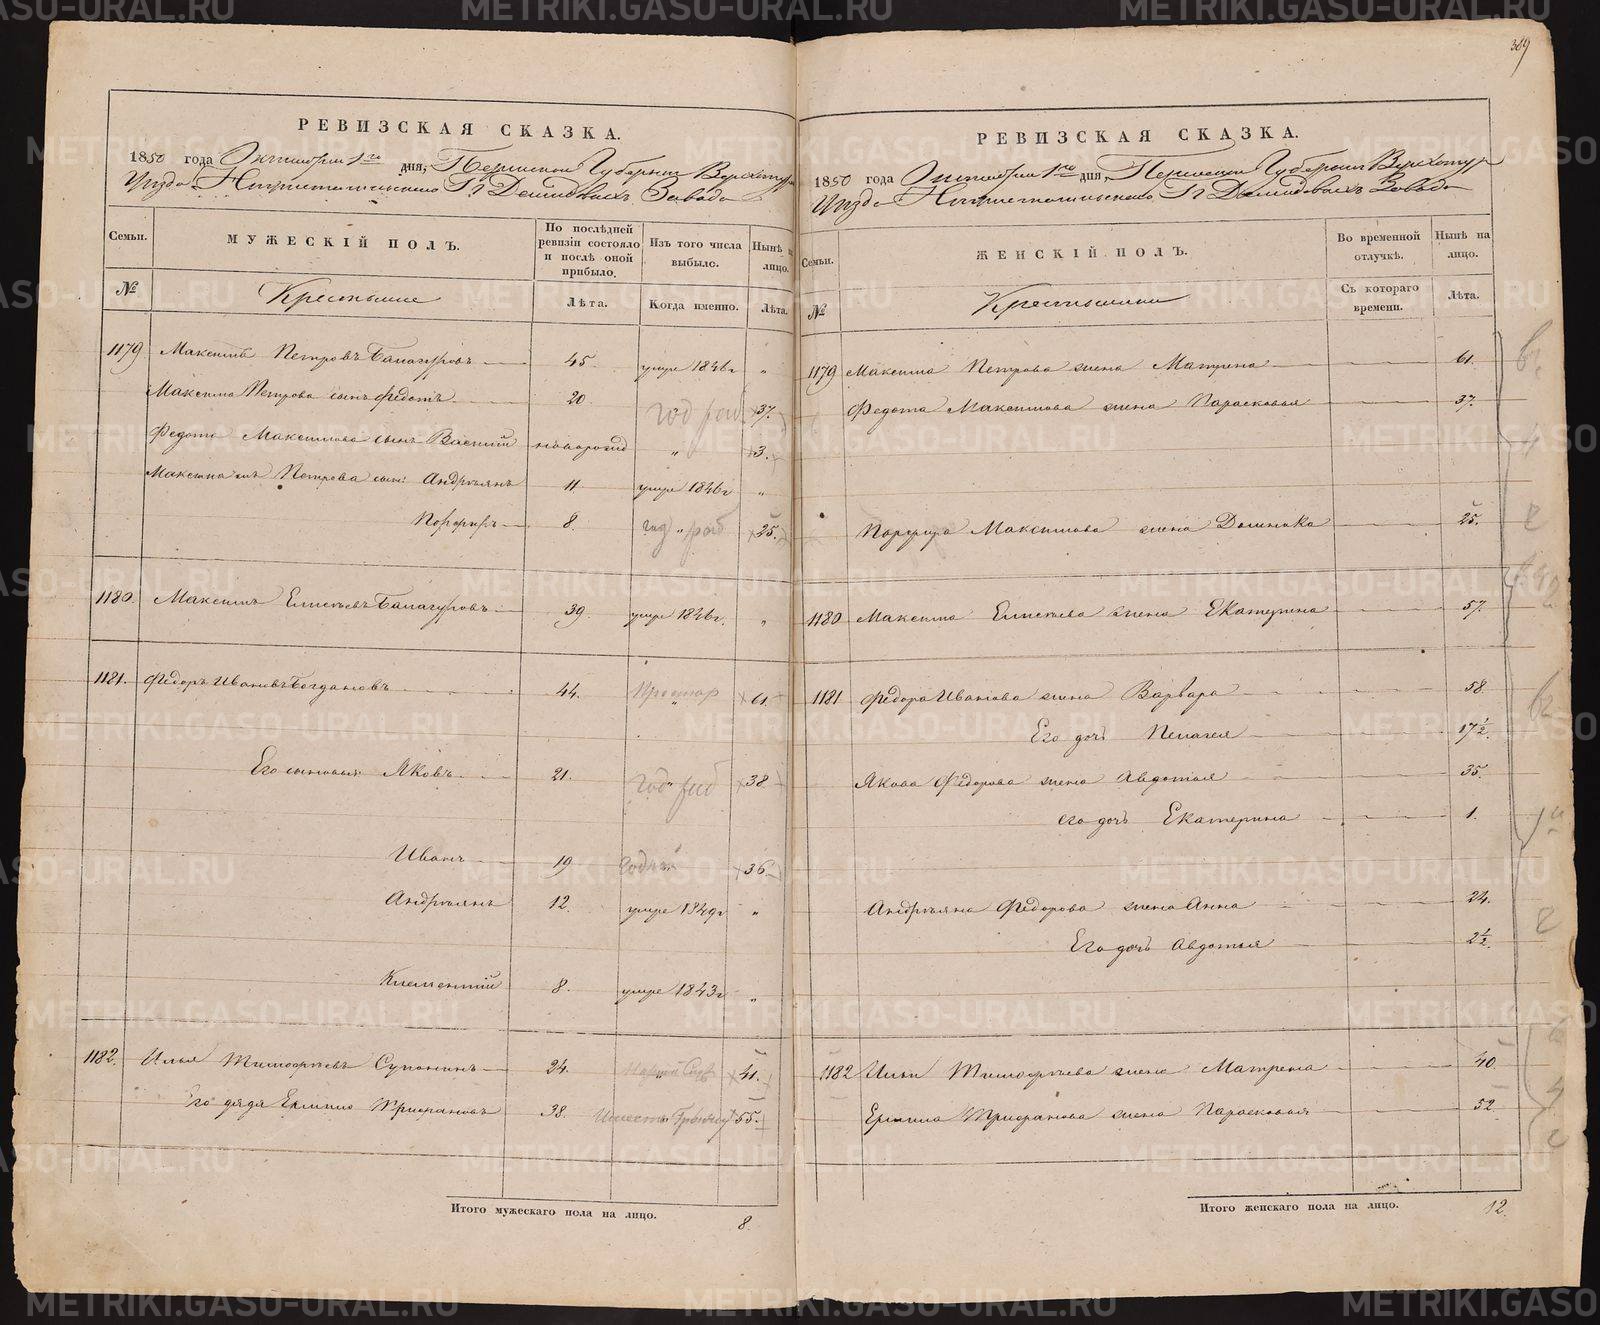 389
РЕВИЗСКАЯ СКАЗКА.
1850 года Октября 1го дня, Пермской Губернии Верхотур
Уезда Нижнетагильскаго Гг Демидовыхъ Завода
Семьи.
МУЖЕСКІЙ ПОЛЪ.
По послѣдней ревизіи состояло и послѣ оной прибыло.
Изъ того числа выбыло.
Нынѣ на лицо.
№
Крестьяне
Лѣта.
Когда именно.
Лѣта.
1179 Максимъ Петровъ 45 умре 1846г "
Максима Петрова сынъ Федотъ 20 37.
Федота Максимова сынъ Василий новорожд " 3.
Максима Петрова сын: Андреянъ 11 умре 1846г "
Порфиръ 8. " 25.
1180. Максимъ Елисеевъ 39. умре 1846г. "
1181. Федоръ Ивановъ Богдановъ 44. " 61.
Его сыновья Яковъ 21. " 38
Иванъ 19 " 36
Андреянъ 12. умре 1849г "
Климентий 8. умре 1843г "
1182. Илья Тимофеевъ Супонинъ 24. " 41.
Его дядя Ермило Трифановъ 38. " 55.
Итого мужескаго пола на лицо.
8.
РЕВИЗСКАЯ СКАЗКА.
1850 года Октября 1го дня, Пермской Губернии Верхотур
Уезда Нижнетагильскаго Гг Демидовыхъ Завода
Семьи.
ЖЕНСКІЙ ПОЛЪ.
Во временной отлучкѣ.
Нынѣ на лицо.
№
Крестьянки
Съ котораго времени.
Лѣта.
1179 Максима Петрова жена Матрена 61.
Федота Максимова жена Парасковья 37.
Порфира Максимова жена Домника 25.
1180 Максима Елисеева жена Екатерина 57.
1181 Федора Иванова жена Варвара 58.
Его дочь Пелагея 17½.
Якова Федорова жена Авдотья 35.
его дочь Екатерина 1.
Андреяна Федорова жена Анна 24.
Его дочь Авдотья 2½.
1182 Ильи Тимофеева жена Матрена 40.
Ермила Трифанова жена Парасковья 52.
Итого женскаго пола на лицо.
12.
METRIKI.GASO-URAL.RU